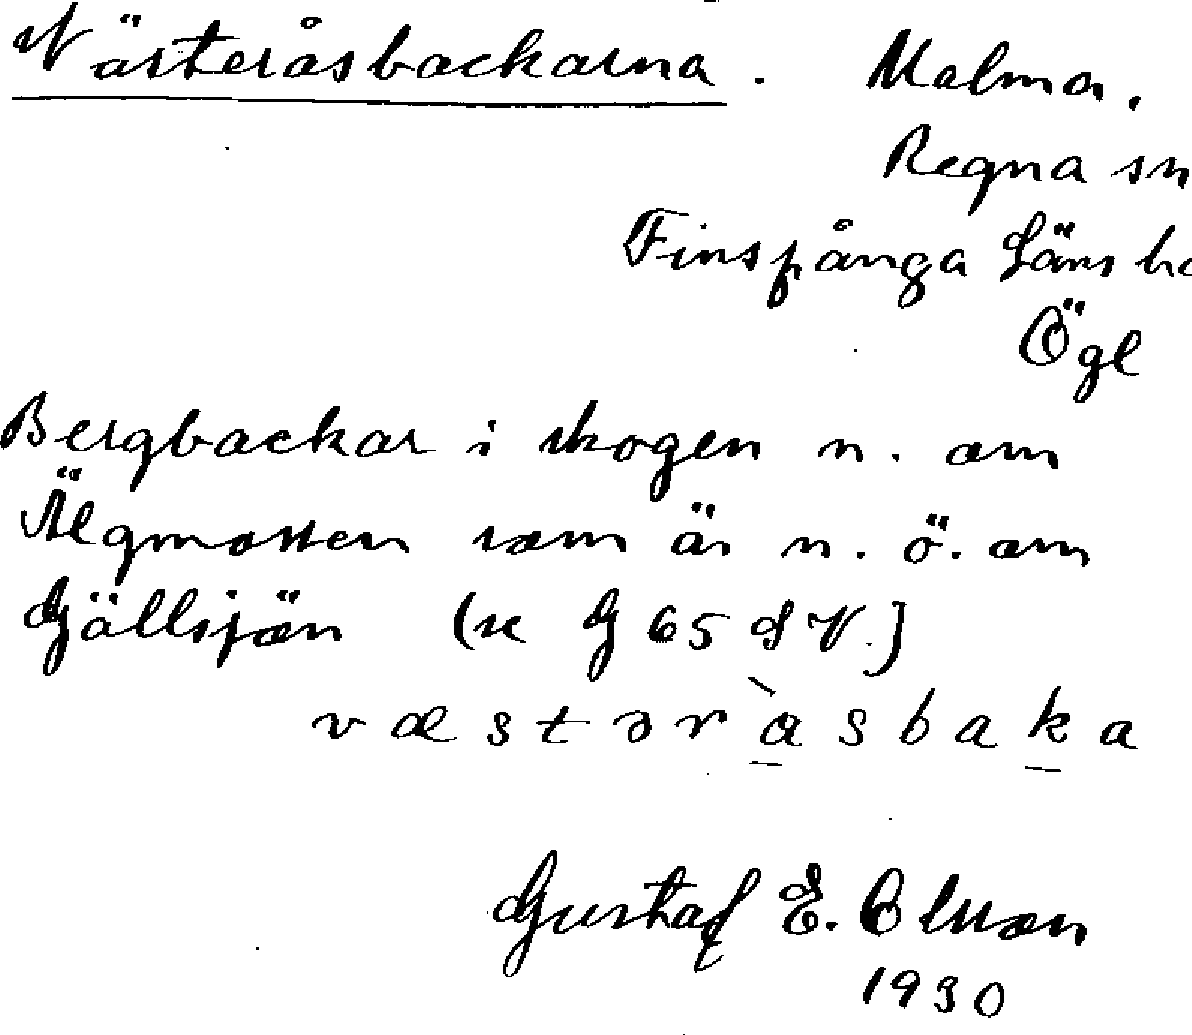 Västeråsbackarna. Malma.
Regna sn
Finspånga Läns
Ögl
Bergbackar i skogen n. om
Älgmossen som är n. ö. om
Gjällsjön (se G 65 d V.)
v æ s t ə r à s b a k a
Gustaf E. Olsson
1930